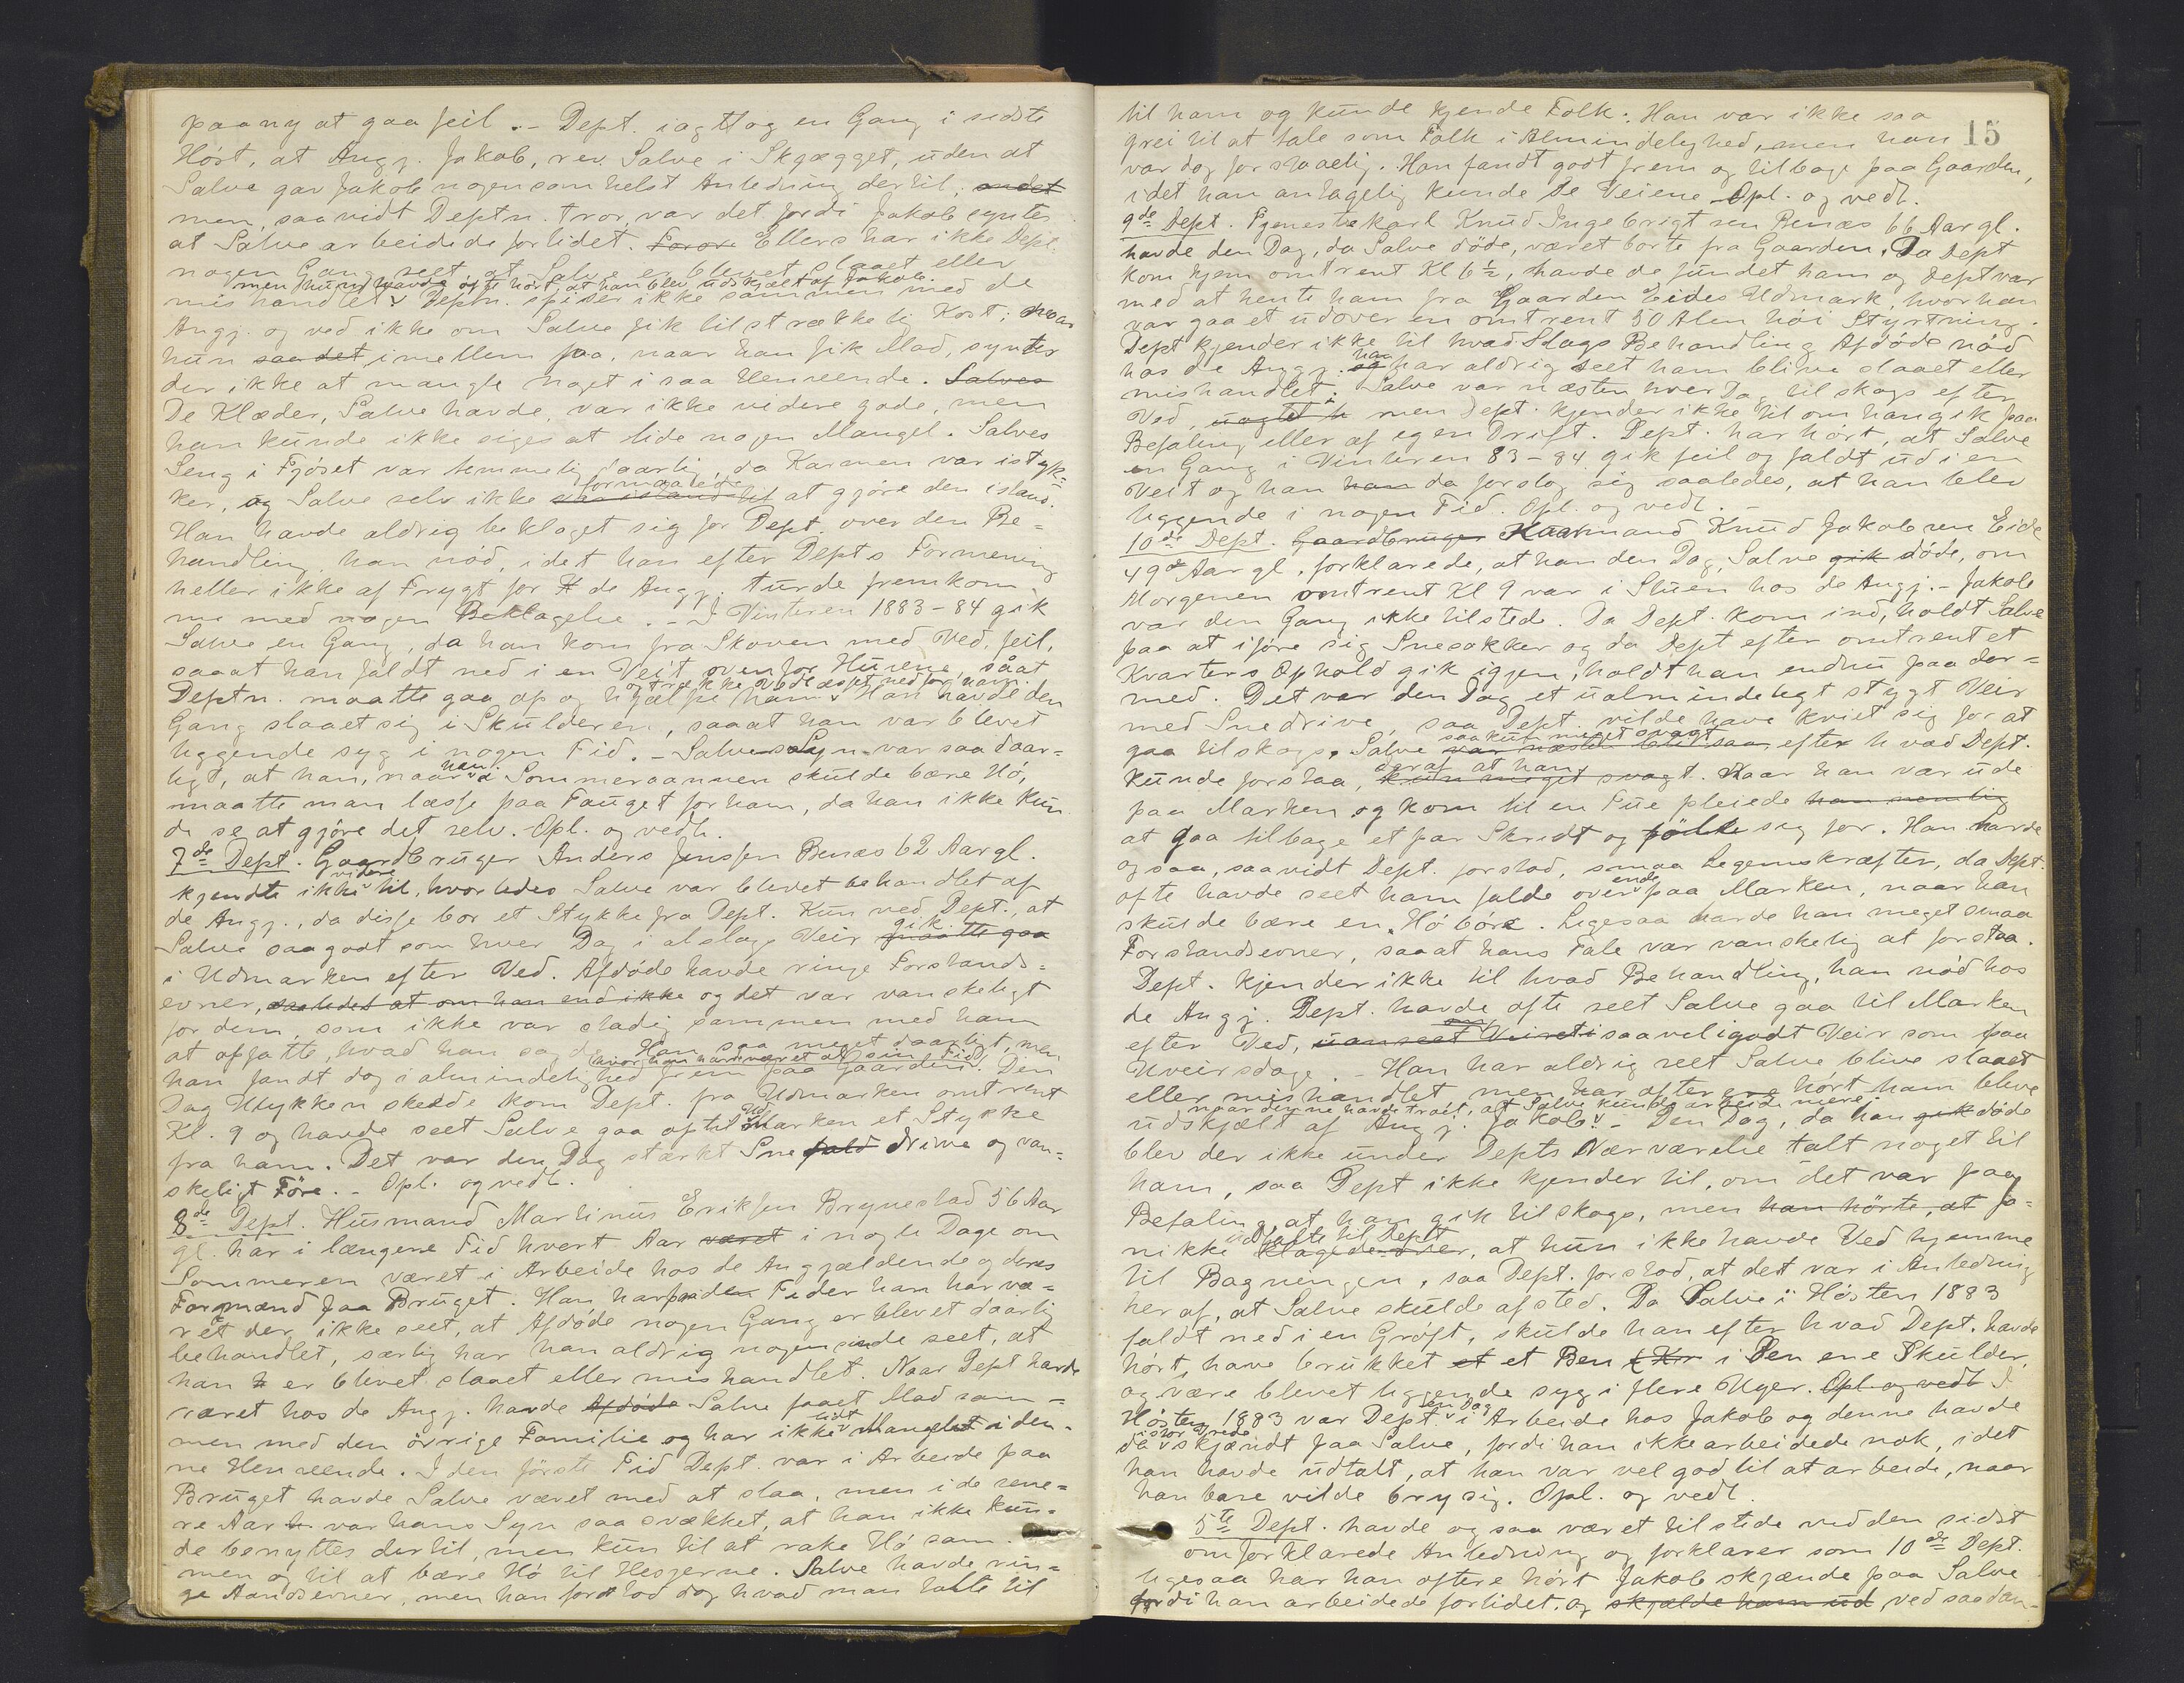 paany at gaa feil. - Dept. iagttog en Gang i sidste
Höst, at Angj. Jakob, rev Salve i Skjægget, uden at
Salve gav Jakob nogensomhelst Anledning dertil, andet
men, saavidt Deptn. tror, var det fordi Jakob syntes
at Salve arbeidede forlidet. Ellers har ikke Dept.
nogen Gang seet at Salve er blevet slaaet eller
men hun havde ofte hört, at han blev udskjælt af Jakob.
mishandlet. Deptn. spiser ikke sammen med de
Angj. og ved ikke om Salve fik tilstrækkelig Kost; naar
hun saa det, imellem saa, naar han fik Mad, syntes
der ikke at mangle noget i saa Henseende. Salves
De Klæder, Salve havde, var ikke videre gode, men
han kunde ikke siges at lide nogen Mangel. Salves
Seng i Fjöset var temmelig daarlig, da Karmen var istyk=
formaaede
ker, og Salve selv ikke var istand til at gjöre den istand.
Han havde aldrig beklaget sig for Dept. over den Be=
handling, han nöd, idet han efter Depts Formening
heller ikke af Frygt for de Angj. turde fremkom=
me med nogen Beklagelse. - I Vinteren 1883-84 gik
Salve en Gang, da han kom fra Skoven med Ved, feil,
saaat han faldt ned i en Veit ovenfor Husene, såat
og trække Vedlæsset ned for ham.
Deptn. maatte gaa op og hjælpe ham. Han havde den
Gang slaaet sig i Skulderen, saaat han var blevet
liggende syg i nogen Tid. - Salves Syn var saa daar=
han
ligt, at han, naar i Sommeraannen skulde bære Hö,
maatte man læsse paa Fauget for ham, da han ikke kun
de se at gjöre det selv. - Opl. og vedt.
7de Dept. Gaardbruger Anders Jensen Benæs 62 Aar gl.
videre
kjendte ikke til, hvorledes Salve var blevet behandlet af
de Angj., da disse bor et Stykke fra Dept. Kun ved Dept., at
gik
Salve saagodt som hver Dag i alslags Veir maatte gaa
i Udmarken efter Ved. Afdöde havde ringe Forstands=
evner, saaledes at om han end ikke og det var vanskeligt
for dem, som ikke var stadig sammen med ham
at opfatte, hvad han sagde. Han saa meget daarligt, men
hvor han havde været al sin Tid
han fandt dog i almindelighed frem paa Gaarden. Den
Dag Ulykken skede kom Dept. fra Udmarken omtrent
Ud
Kl. 9 og havde seet Salve gaa op til Marken et Stykke
fra ham. Det var den Dag stærkt Snefald drive og van=
skeligt Före. - Opl. og vedt.
8de Dept. Husmand Martinus Eriksen Brynestad 56 Aar
gl. har i længere Tid hvert Aar været i nogle Dage om
Sommeren været i Arbeide hos de Angjældende og deres
Formænd paa Bruget. Han har paa den Tider han har væ=
ret der, ikke seet, at Afdöde nogen Gang er blevet daarlig
behandlet, særlig har han aldrig nogensinde seet, at
han er blevet slaaet eller mishandlet. Naar Dept havde
været hos de Angj. havde Afdöde Salve faaet Mad sam=
lidt
men med den övrige Familie og har ikke Manglet i den=
ne Henseende. I den förste Tid Dept. var i Arbeide paa
Bruget havde Salve været med at slaa, men i de sene=
re Aar var hans Syn saa svækket, at han ikke kun=
de benyttes dertil, men kun til at rake Hö sam=
men og til at bære Hö til Hesjerne. Salve havde rin=
ge Aandsevner, men han forstod dog hvad man talte til
15
til ham og kunde kjende Folk. Han var ikke saa
grei til at tale som Folk i Almindelighed, men han
var dog forstaaelig. Han fandt godt frem og tilbage paa Gaarden,
idet han antagelig kunde se Veiene. Opl. og vedt.
9de Dept. Tjenestekarl Knud Ingebrigtsen Benæs 66 Aar gl.
havde den Dag, da Salve döde, været borte fra Gaarden. Da Dept
kom hjem omtrent Kl 6½, havde de fundet ham og Dept var
med at hente ham fra Gaarden Eides Udmark, hvor han
var gaaet udover en omtrent 50 Alen höi Styrtning.
Dept kjender ikke til hvad Slags Behandling Afdöde nöd
han
hos de Angj. og har aldrig seet ham blive slaaet eller
mishandlet. Salve var næsten hver Dag til skogs efter
Ved, uagtet h men Dept. kjender ikke til om han gik paa
Befaling eller af egen Drift. Dept. har hört, at Salve
en Gang i Vinteren 83-84 gik feil og faldt ud i en
Veit og han han da forslog sig saaledes, at han blev
liggende i nogen Tid. Opl. og vedt. -
10de Dept. Gaardbruger Kaarmand Knud Jakobsen Eide
49 Aar gl. forklarede, at han den Dag, Salve gik döde, om
Morgenen omtrent Kl 9 var i Stuen hos de Angj. - Jakob
var den Gang ikke tilstede. Da Dept. kom ind, holdt Salve
paa at iföre sig Snesokker og da Dept efter omtrent et
Kvarters Ophold gik igjen, holdt han endnu paa der=
med. Det var den Dag et ualmindeligt stygt Veir
med Snedrive, saa Dept. vilde have kviet sig for at
saa kun meget svagt
gaa til skogs. Salve var næsten blind saa efter hvad Dept.
deraf at han
kunde forstaa, kun meget svagt. Naar han var ude
paa Marken og kom til en Tue pleiede han nemlig
at gaa tilbage et par Skridt og fölte sig for. Han havde
ogsaa, saavidt Dept. forstod, smaa Legemskræfter, da Dept.
ende
ofte havde seet ham falde over paa Marken, naar han
skulde bære en Höböre. Ligesaa havde han meget smaa
Forstandsevner, saaat hans Tale var vanskelig at forstaa.
Dept. kjender ikke til hvad Behandling, han nöd hos
de Angj. Dept. havde ofte seet Salve gaa til Marken
efter Ved, uanseet Veiret i saavel i godt Veir som paa
Uveirsdage. - Han har aldrig seet Salve blive slaaet
eller mishandlet men har oftere hört ham blive
naar denne havde troet, at Salve kunde arbeide mere.
udskjælt af Angj. Jakob. - Den Dag, da han gik döde
blev der ikke under Depts Nærværelse talt noget til
ham, saa Dept ikke kjender til, om det var paa
Befaling, at han gik til skogs, men han hörte, at Ja=
udtalte til Dept
nikke klagede over, at hun ikke havde Ved hjemme
til Bagningen, saa Dept. forstod, at det var i Anledning
heraf, at Salve skulde afsted. Da Salve i Hösten 1883
faldt ned i en Gröft, skulde han efter hvad Dept. havde
hört, have brukket et et Ben i den ene Skulder,
og være blevet liggende syg i flere Uger. Opl. og vedt I
en Dag
Hösten 1883 var Dept. i Arbeide hos Jakob og denne havde
i stor Vrede
da skjændt paa Salve, fordi han ikke arbeidede nok, idet
han havde udtalt, at han var vel god til at arbeide, naar
han bare vilde bry sig. Opl. og vedt.
5te Dept. havde ogsaa været tilstede ved den sidst
omforklarede Anledning og forklarer som 10de Dept.
ligesaa har han oftere hört Jakob skjænde paa Salve
fordi han arbeidede forlidet. og skjælde ham ud, ved saadan=